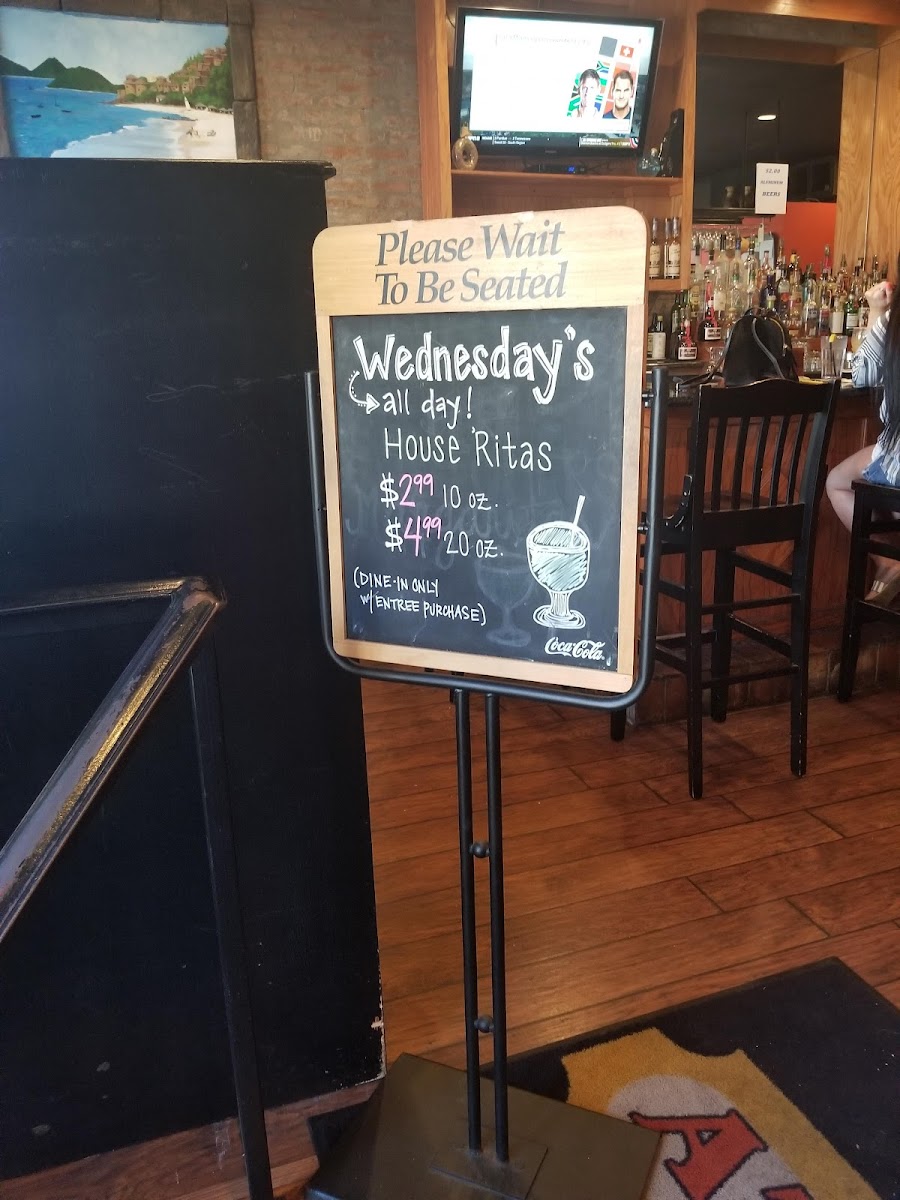 Please Wait
To Be Seated
Wednesday's
all day!
House 'Ritas
$2.99 10 oz.
$4.99 20 oz.
(DINE-IN ONLY
w/ ENTREE PURCHASE)
Coca-Cola
BEERS
A